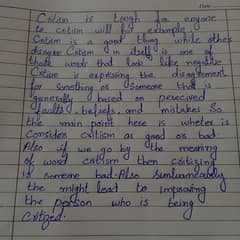 Critism is tough for anyone
to critism will for example
Critism is a good thing while other
disagree Critism 0 in itself is one of
those words that look like negative
Critism is expressing the disagreement
for something or Someone that is
generally based on perceived
faults, beliefs, and mistakes So
the main point here is wheter is
Consider critism as good or bad
Also if we go by the meaning
of word critism then critising
is someone bad. Also Simluneously
the might lead to improving
the person who is being
Critized.